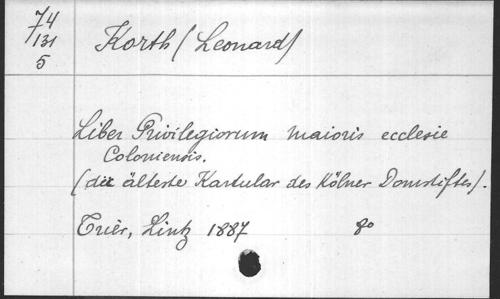 74
131
5
Korth (Leonard)
Liber Privilegiorum maioris ecclesie
Coloniensis.
(der älteste Kartular des Kölner Domstiftes).
Trier, Lintz 1887 8o